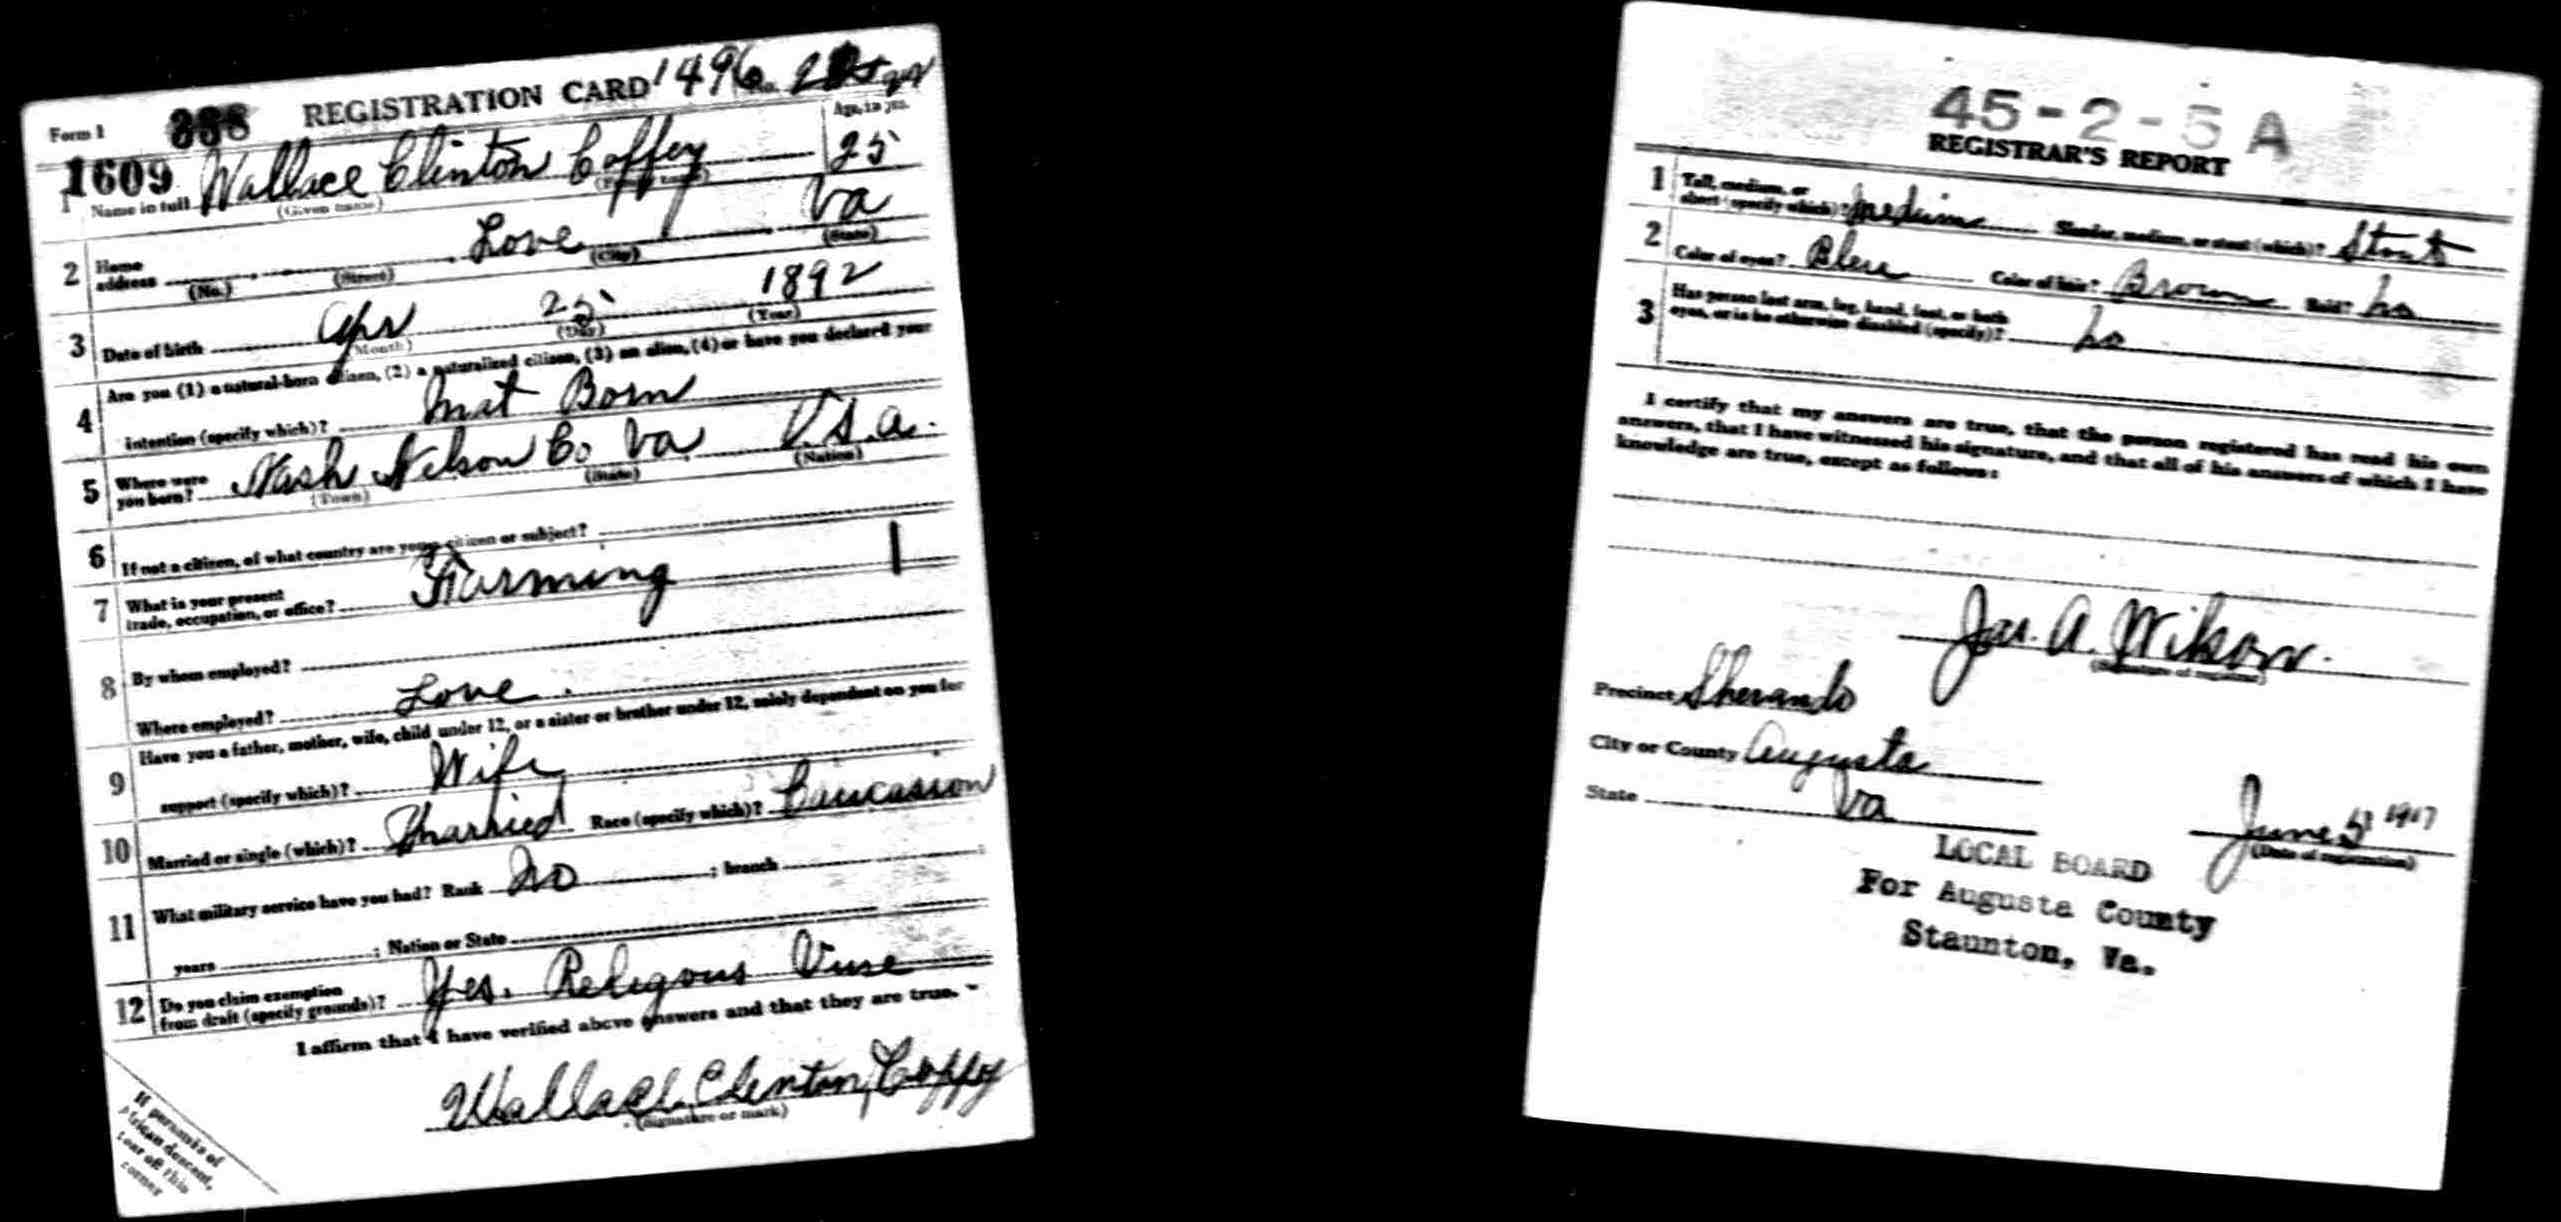 Form 1 REGISTRATION CARD 1496 No.
1609 Name in full Wallace Clinton Coffey Age, in yrs. 25
(Given name) (Family name)
2 Home address Love Va
(No.) (Street) (City) (State)
3 Date of birth Apr 25 1892
(Month) (Day) (Year)
4 Are you (1) a natural-born citizen, (2) a naturalized citizen, (3) an alien, (4) or have you declared your
intention (specify which)? Nat Born
5 Where were you born? Nash Nelson Co Va U.S.A.
(Town) (State) (Nation)
6 If not a citizen, of what country are you a citizen or subject?
7 What is your present trade, occupation, or office? Farming 1
8 By whom employed?
Where employed? Love
9 Have you a father, mother, wife, child under 12, or a sister or brother under 12, solely dependent on you for
support (specify which)? Wife
10 Married or single (which)? Married Race (specify which)? Caucasion
11 What military service have you had? Rank No ; branch
years ; Nation or State
12 Do you claim exemption from draft (specify grounds)? Yes. Religous
I affirm that I have verified above answers and that they are true.
Wallace Clinton Coffey
(Signature or mark)
If person is of
African descent,
tear off this
corner
45-2-5 A
REGISTRAR'S REPORT
1 Tall, medium, or short (specify which)? Medium Slender, medium, or stout (which)? Stout
2 Color of eyes? Blue Color of hair? Brown Bald? No
3 Has person lost arm, leg, hand, foot, or both
eyes, or is he otherwise disabled (specify)? No
I certify that my answers are true, that the person registered has read his own
answers, that I have witnessed his signature, and that all of his answers of which I have
knowledge are true, except as follows:
Jas. A. Wilson.
(Signature of registrar)
Precinct Sherando
City or County Augusta
State Va June 5 1917
(Date of registration)
LOCAL BOARD
For Augusta County
Staunton, Va.